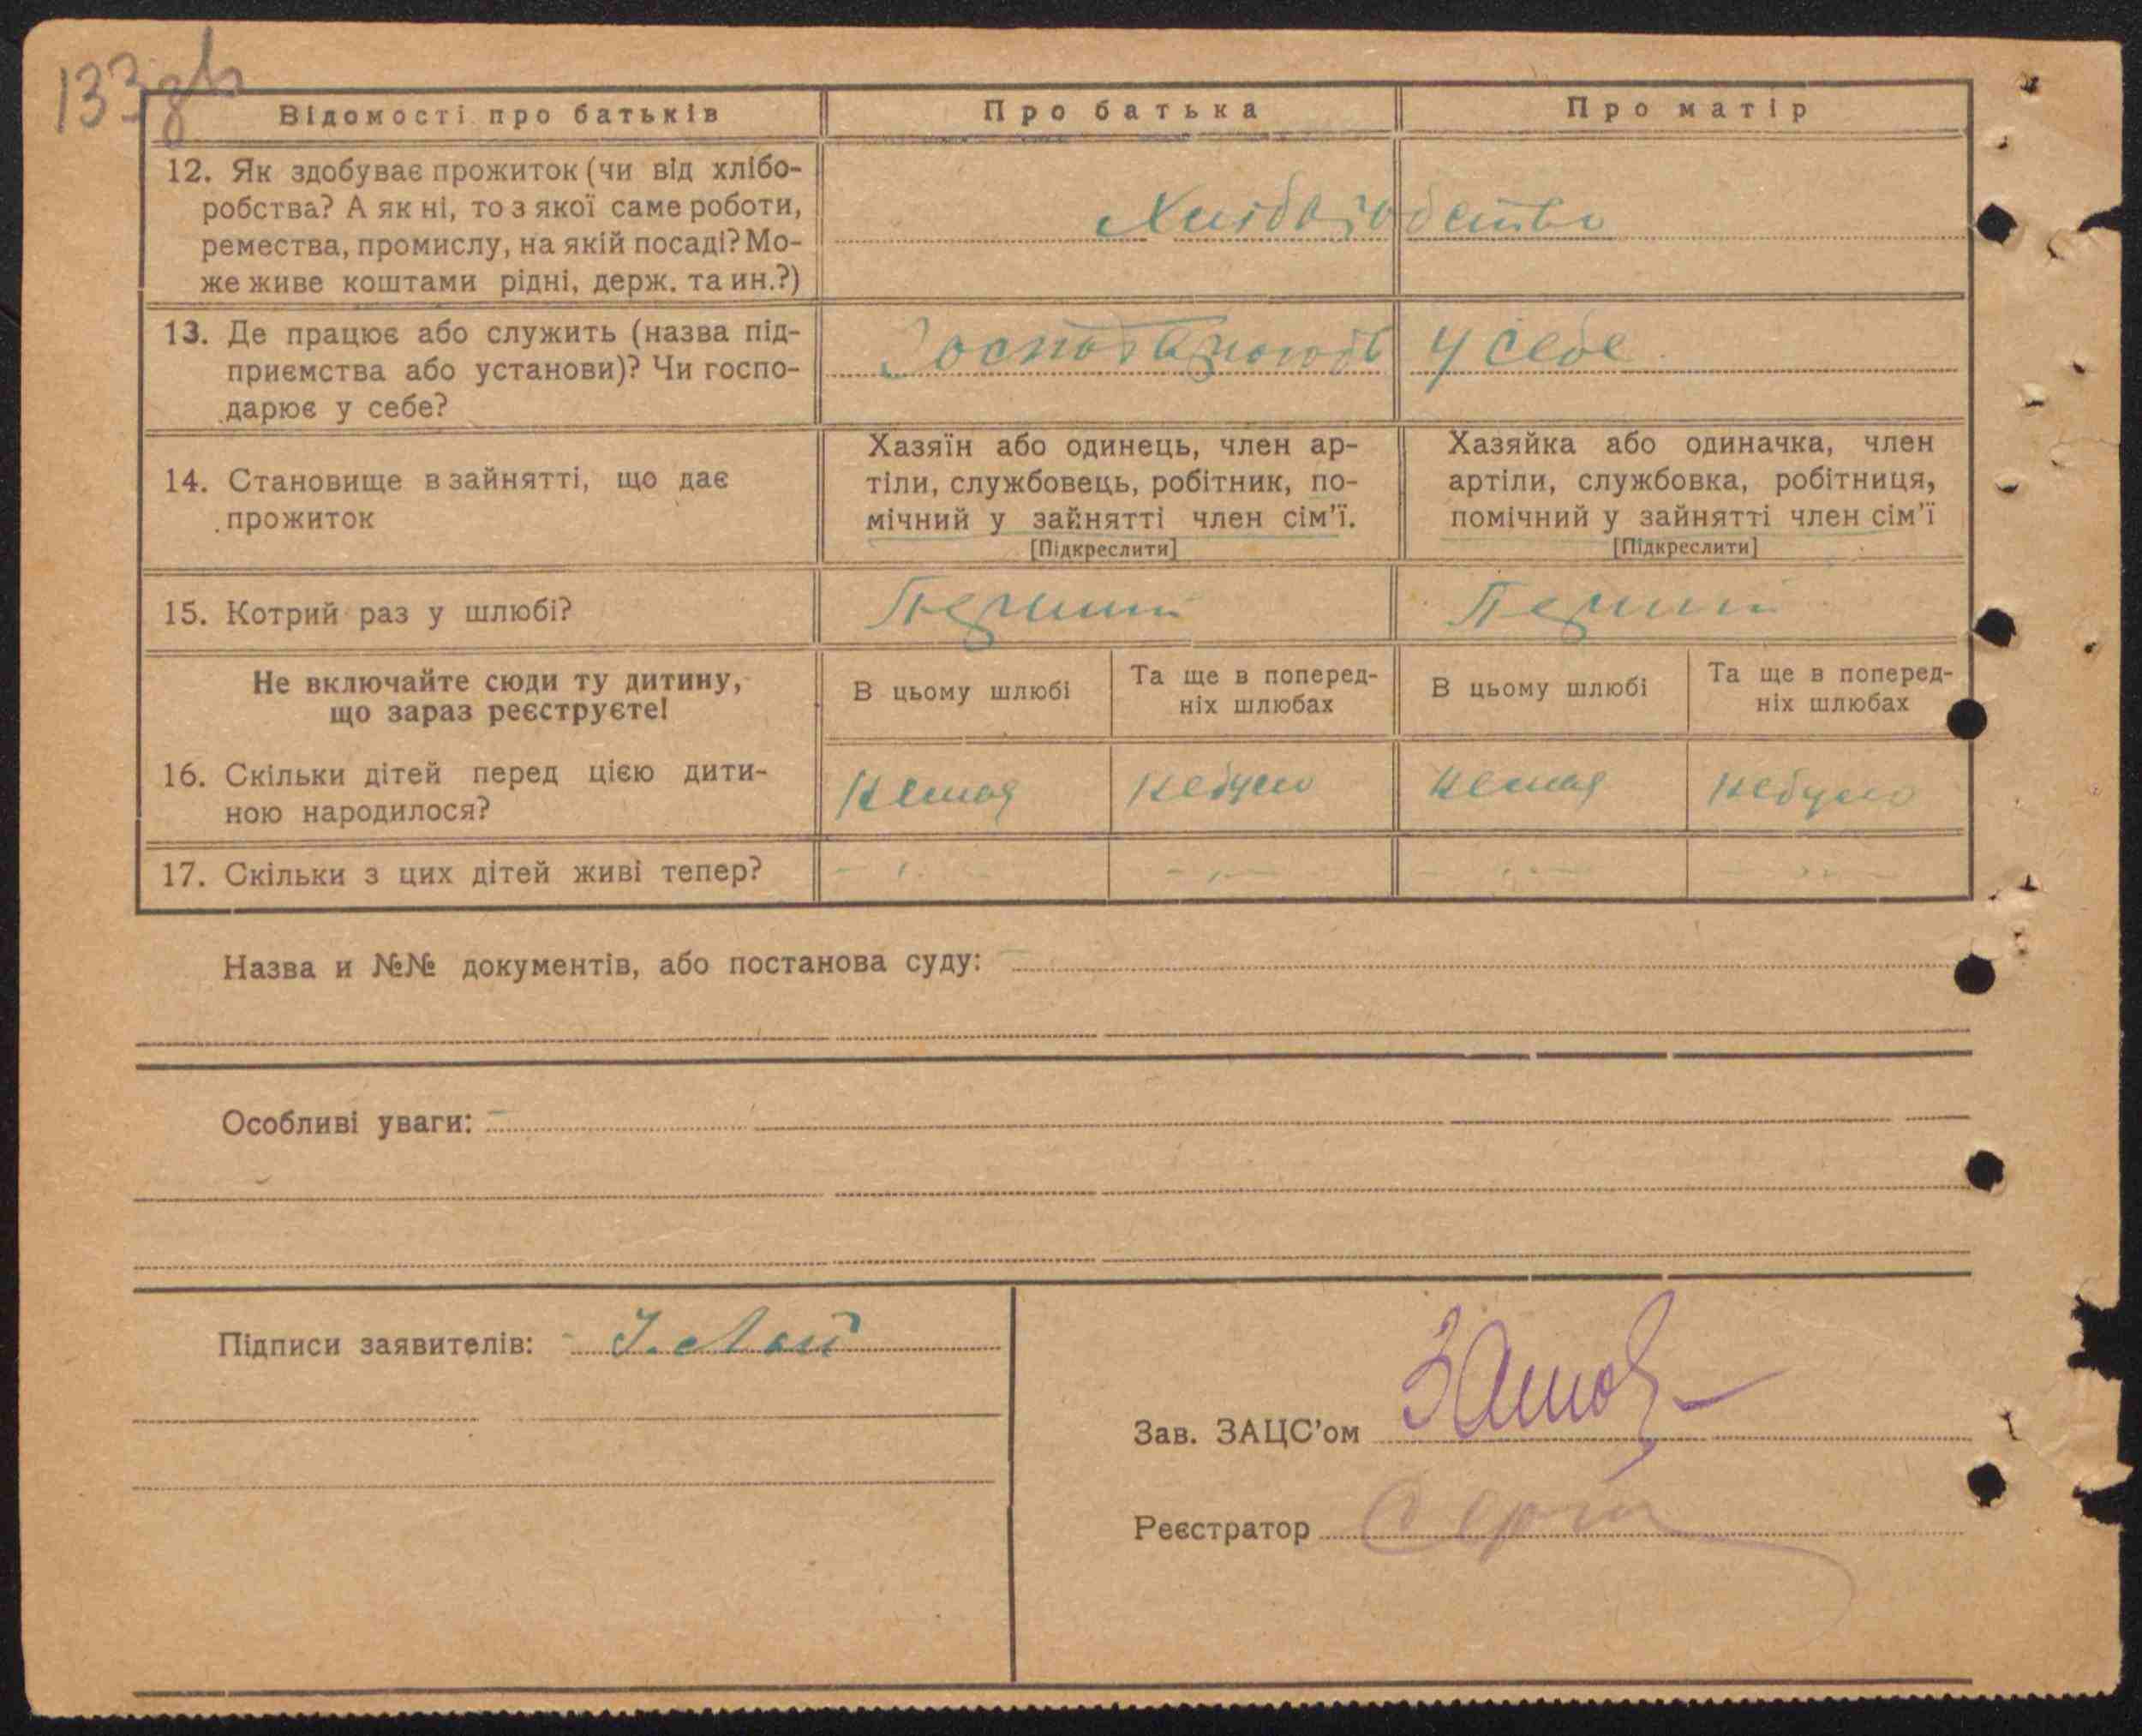 133зв
Відомості про батьків Про батька Про матір
12. Як здобуває прожиток (чи від хлібо-
робства? А як ні, то з якої саме роботи,
ремества, промислу, на якій посаді? Мо-
же живе коштами рідні, держ. та ин.?)
Хліборобство
13. Де працює або служить (назва під-
приємства або установи)? Чи госпо-
дарює у себе?
Господарюють у себе
14. Становище в зайнятті, що дає
прожиток
Хазяїн або одинець, член ар-
тіли, службовець, робітник, по-
мічний у зайнятті член сім’ї.
[Підкреслити]
Хазяйка або одиначка, член
артіли, службовка, робітниця,
помічний у зайнятті член сім’ї
[Підкреслити]
15. Котрий раз у шлюбі? Перший Перший
Не включайте сюди ту дитину,
що зараз реєструєте!
В цьому шлюбі
Та ще в поперед-
ніх шлюбах
В цьому шлюбі
Та ще в поперед-
ніх шлюбах
16. Скільки дітей перед цією дити-
ною народилося?
Немає Небуло Немає Небуло
17. Скільки з цих дітей живі тепер?
Назва и №№ документів, або постанова суду:
Особливі уваги:
Підписи заявителів: І. Лай
Зав. ЗАЦС’ом
Реєстратор